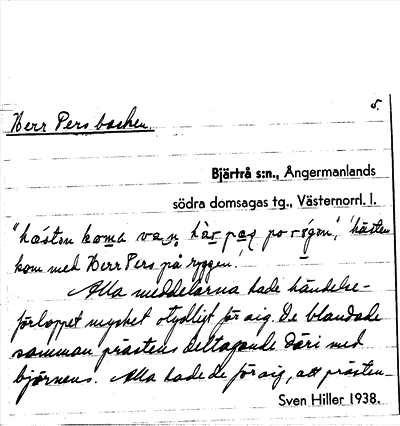 5.
Herr Pers backen.
Bjärtrå s:n., Ångermanlands
södra domsagas tg., Västernorrl. l.
"hästen koma væn hær pær po rygen", 'hästen
kom med Herr Pers på ryggen'.
Alla meddelarna hade händelse-
förloppet mycket otydligt för sig. De blandade
samman prästens deltagande däri med
björnens. Alla hade de för sig, att prästen
Sven Hiller 1938.